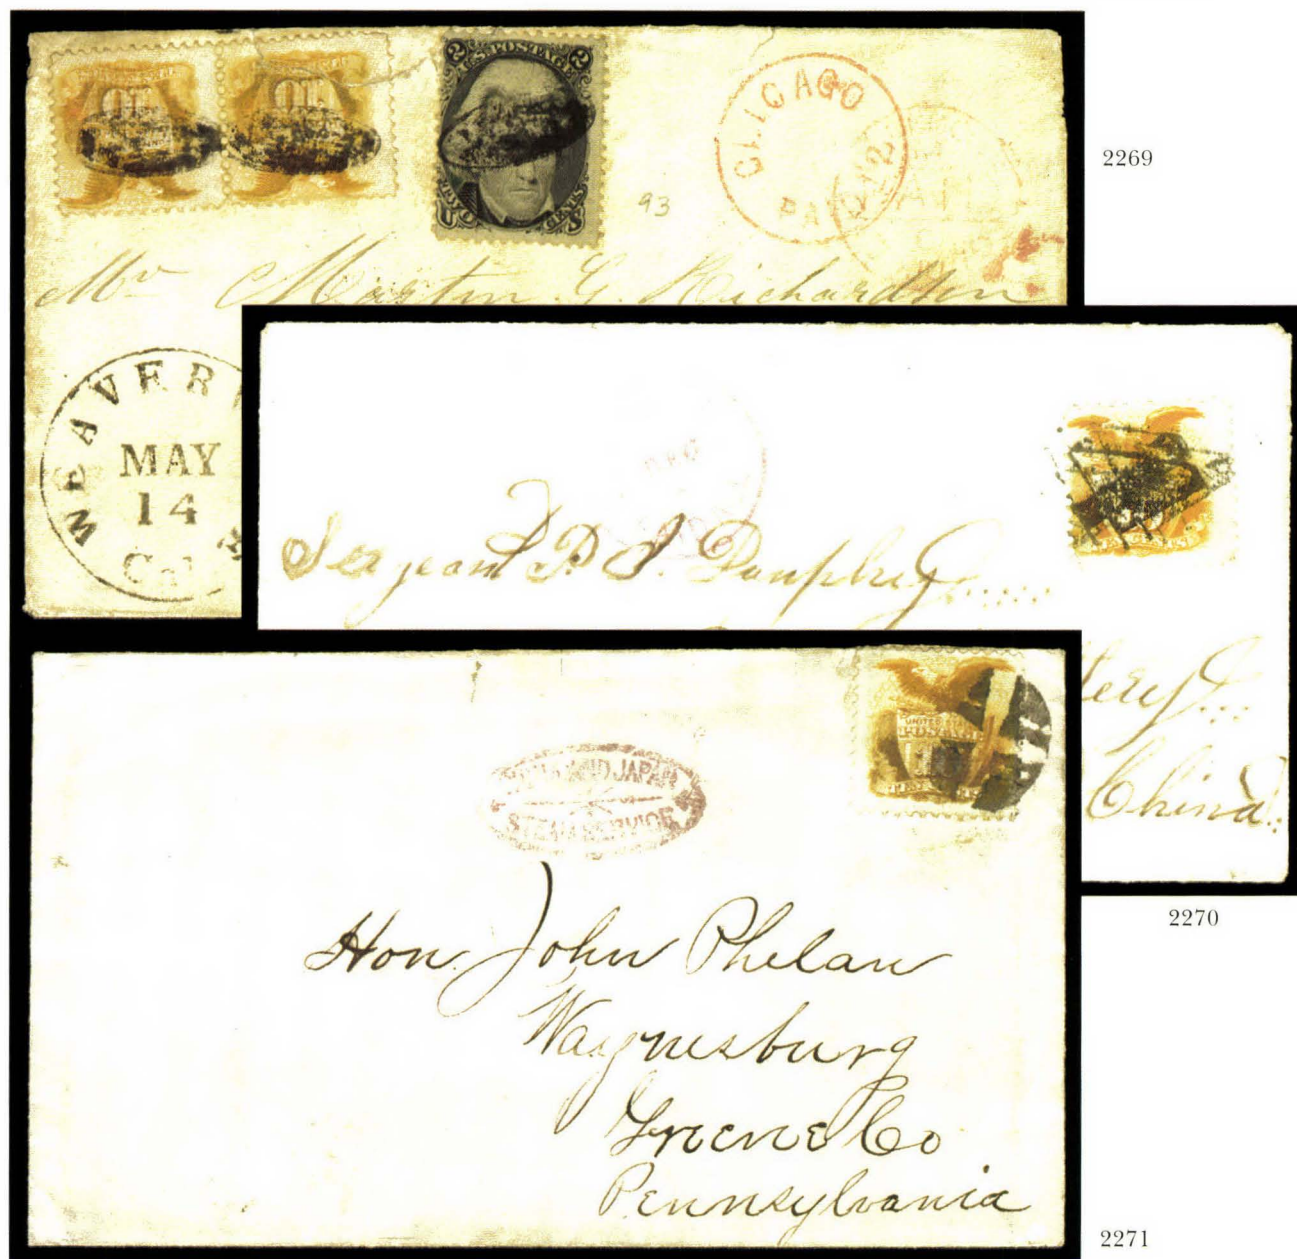 U.S. POSTAGE
2 2
TWO CENTS
U S
10 10
CHICAGO
PAID 12
93
2269
Mr Martin G. Richardson
WEAVERV
MAY
14
Cal
Sergeant P. S. Dunphy
China
2270
UNITED STATES
POSTAGE
AND JAPAN
STEAM SERVICE
Hon. John Phelan
Waynesburg
Greene Co
Pennsylvania
2271